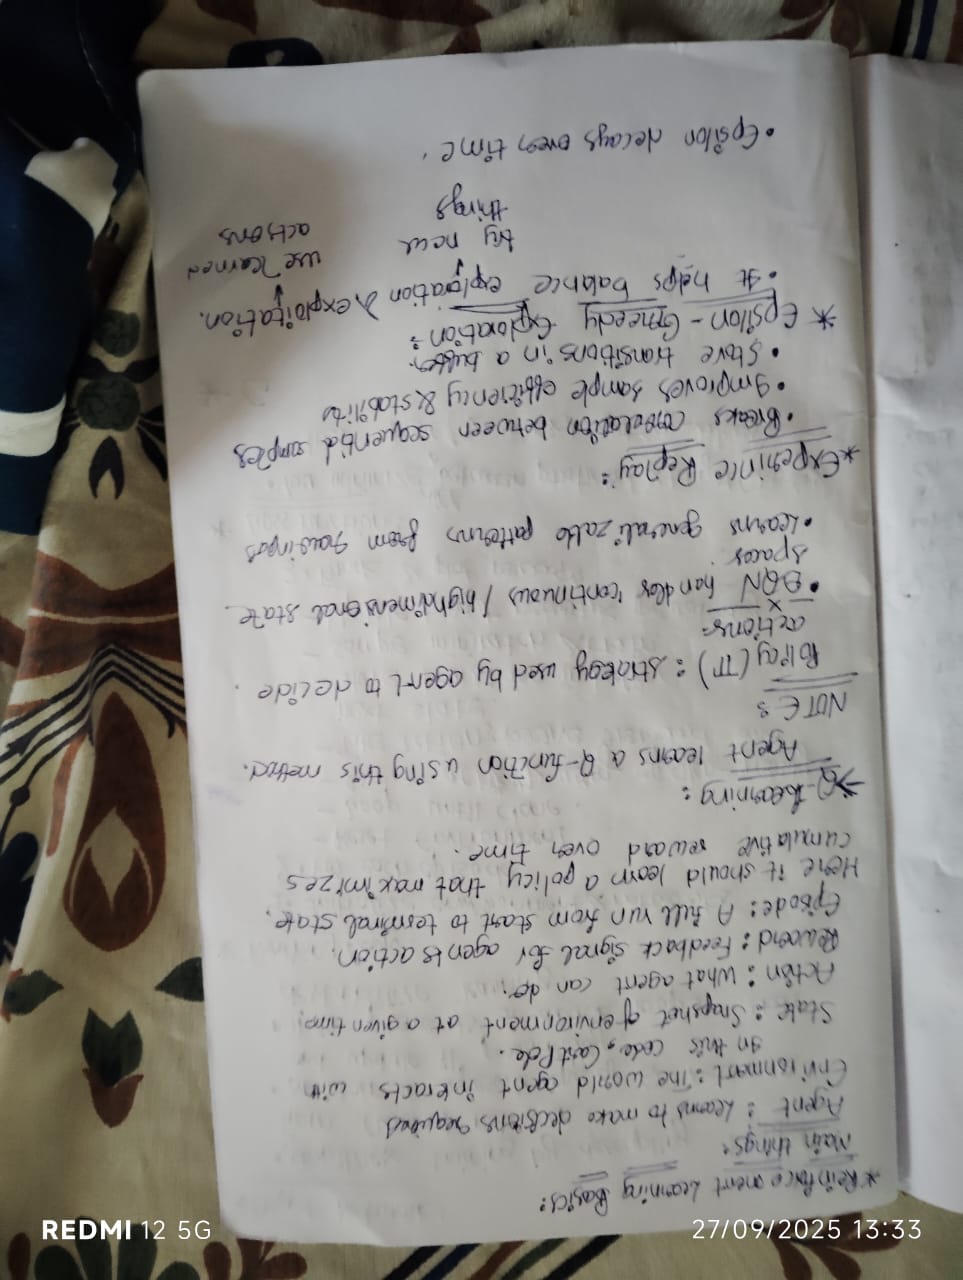 * Reinforcement Learning Basics:
Main things:
Agent : Learns to make decisions required
Environment : The world agent interacts with
In this code, CartPole.
State : Snapshot of environment at a given time.
Action : What agent can do.
Reward : Feedback signal for agents action.
Episode : A full run from start to terminal state.
Here it should learn a policy that maximizes
cumulative reward over time.
→ Q-Learning :
Agent learns a Q-function using this method.
NOTE :
Policy (π) : strategy used by agent to decide
actions.
• DQN handles continuous / highdimensional state
spaces
• Learns generalizable patterns from
* Experince Replay :
• Breaks correlation between sequential samples
• Improves sample efficiency & stability
• Store transitions in a buffer.
* Epsilon - Greedy Exploration :
• It helps balance exploration & exploitation.
try new things
use learned actions
• Epsilon decays over time.
REDMI 12 5G
27/09/2025 13:33